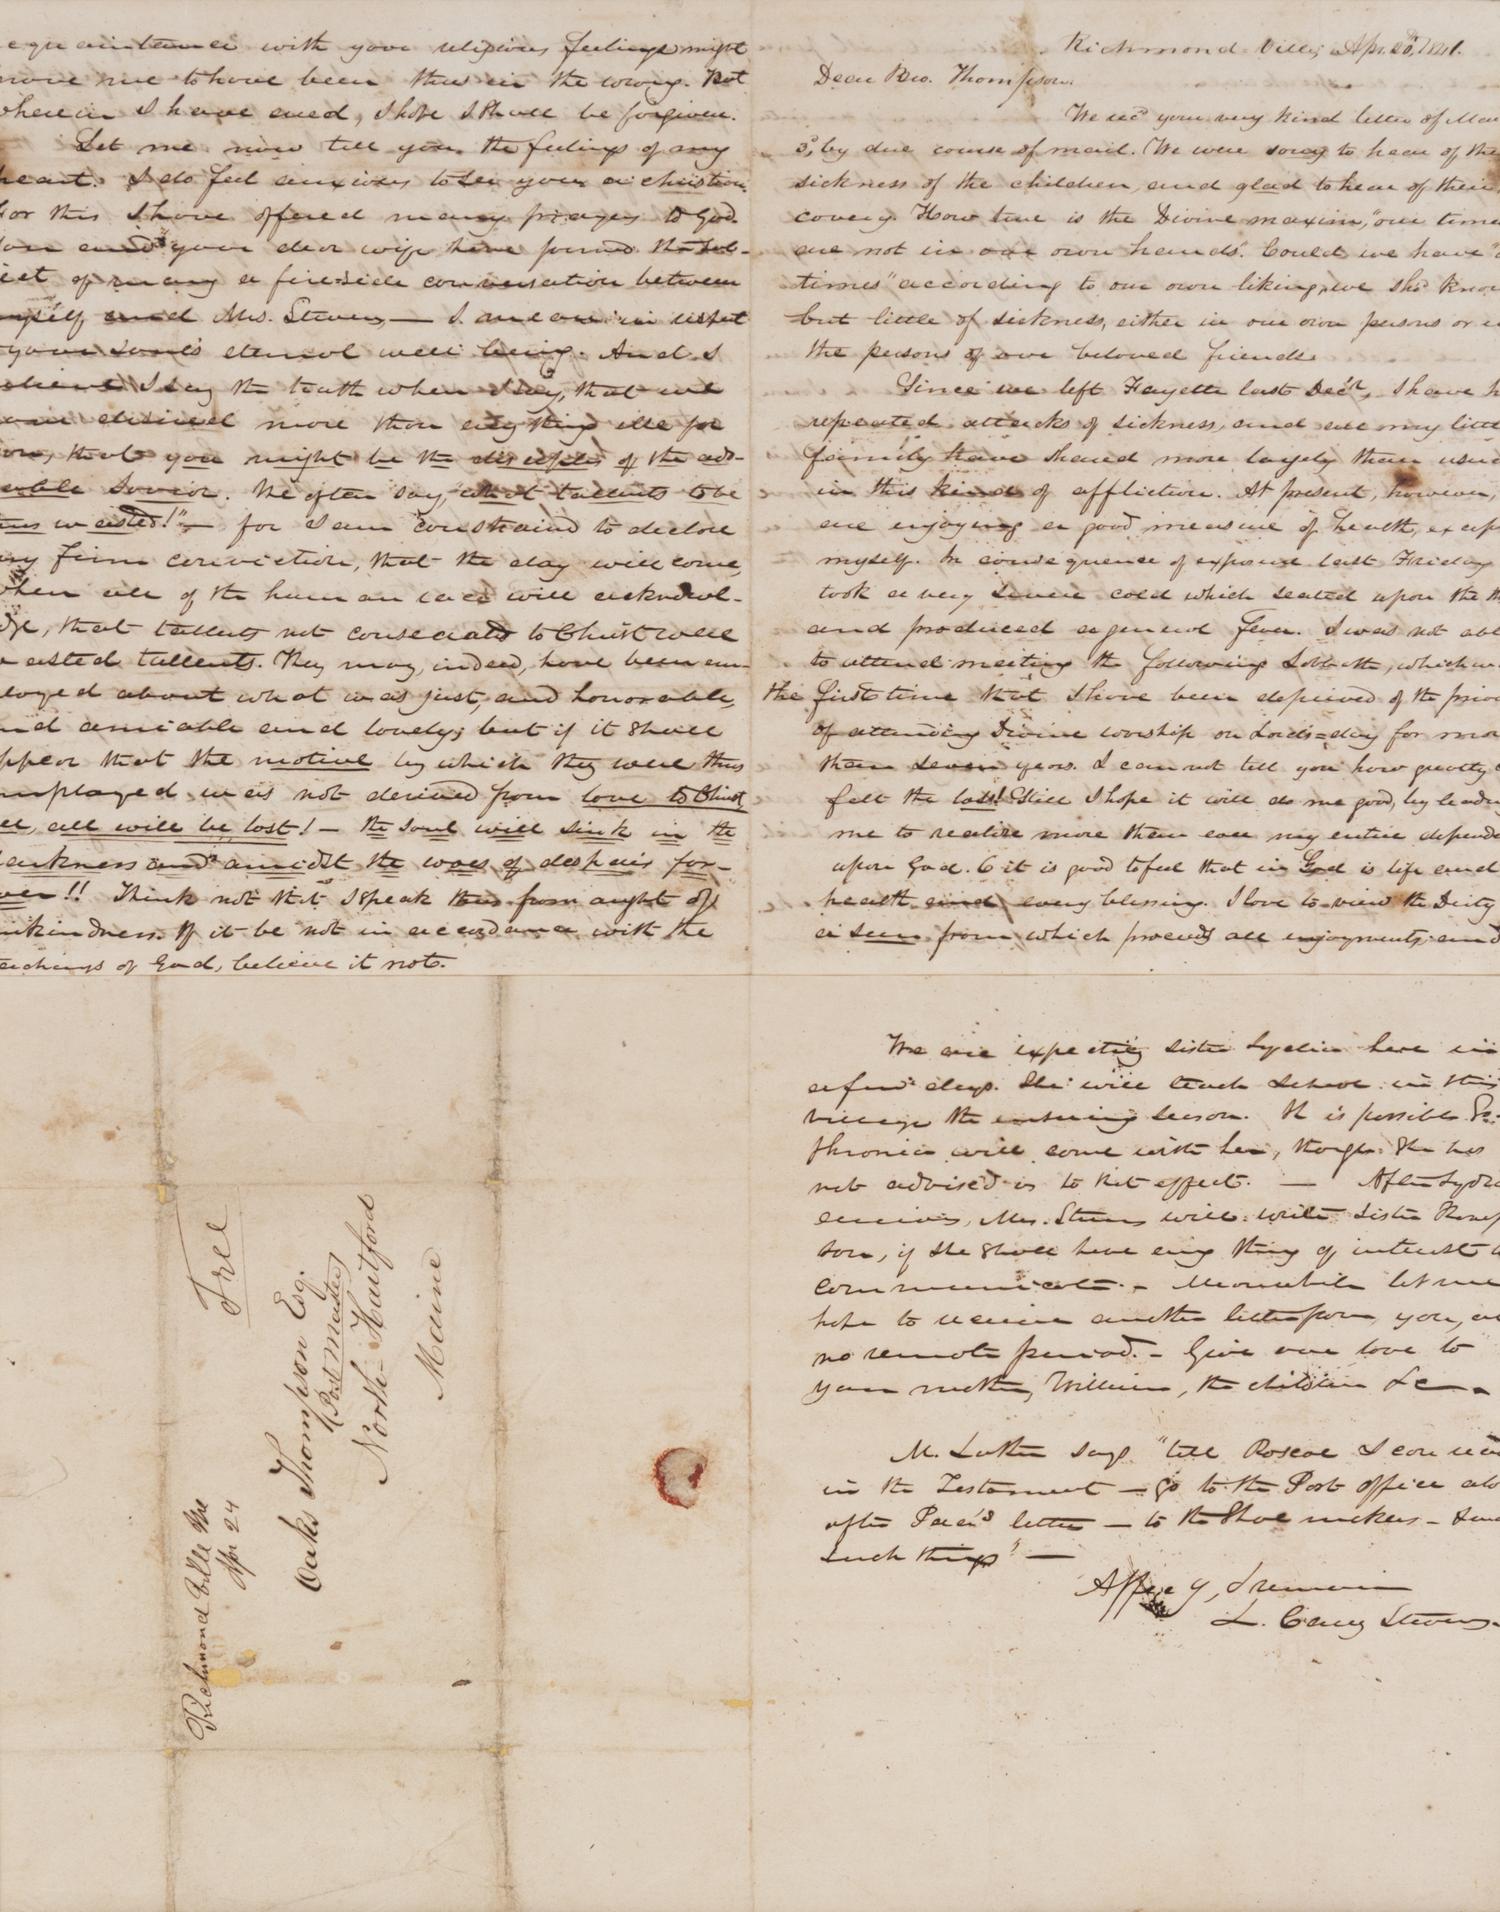 Richmond Ville, Apr. 20, 1841.
Dear Bro. Thompson.
We recd your very kind letter of Mar
3, by due course of mail. We were sorry to hear of the
sickness of the children, and glad to hear of their
covery. How true is the Divine maxim, "our times
are not in our own hands". Could we have "
times" according to our own liking, we shd know
but little of sickness, either in our own persons or
the persons of our beloved friends.
Since we left Fayette last Decr, I have
repeated attacks of sickness, and all my little
family have shared more largely than
in this kind of affliction. At present, however,
are enjoying a good measure of health,
myself. In consequence of exposure last Friday
took a very severe cold which seated upon the
and produced a general fever. I was not
to attend meeting the following Sabbath, which
the first time that I have been deprived of the
of attending Divine worship on Lord's=day for
than seven years. I can not tell you how greatly
felt the loss! Still I hope it will do me good, by
me to realize more than ever my entire
upon God. O it is good to feel that in God is life and
health and every blessing. I love to view the Deity
a seen from which proceeds all enjoyments, and
acquaintance with your religious feelings might
prove me to have been thus in the wrong. But
wherein I have erred, I hope I shall be forgiven.
Let me now tell you the feelings of my
heart. I do feel anxious to see you a christian.
For this I have offered many prayers to God.
You and your dear wife have formed the sub-
ject of many a fireside conversation between
myself and Mrs. Stevens, — I am in respect
your soul's eternal well being. And I
believe I say the truth when I say, that we
have desired more than any thing else for
you, that you might be the disciples of the ador-
able Savior. We often say, "what tallents to be
thus wasted!" — for I am constraind to declare
my firm conviction, that the day will come,
when all of the human race will acknowl-
edge, that tallents not consecrated to Christ were
wasted tallents. They may, indeed, have been em-
ployed about what was just, and honorable,
and amiable and lovely; but if it shall
appear that the motive by which they were thus
employed was not derived from love to Christ
all, all will be lost! — the soul will sink in the
darkness and amidst the woes of despair for-
ever!! Think not that I speak thus from aught of
unkindness. If it be not in accordance with the
teachings of God, believe it not.
We are expecting sister Lydia here in
a few days. She will teach school in this
village the ensuing season. It is possible
phronia will come with her, though she has
not advised us to that effect. — After Lydia
arrives, Mrs. Stevens will write Sister Thomp
son, if she shall have any thing of interest
communicate. — Meanwhile let me
hope to receive another letter from you, at
no remote period. — Give our love to
your mother, William, the children &c —
M. Luther says "tell Roscoe I can read
in the Testament — go to the Post office
after Papa's letter — to the Shoe makers —
such things" —
Affecy, I remain
L. Carey Stevens.
Richmond Ville Me
Apr 24
Free
Oaks Thompson Esq.
(Post Master)
North Hartford
Maine